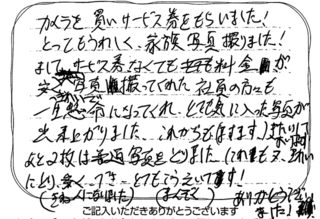 カメラを買いサービス券をもらいました!
とってもうれしく、家族写真撮りました!
そして、サービス券なくても料金が
安く写真撮ってくれた社員の方々も
一生懸命になってくれ、とても気に入った写真が
出来上がりました これからもますます
あと2枚は写真をとりました(これも又、きれい
にとり、多く、とてもこうえいです!
ありがとうございました
ご記入いただきありがとうございます